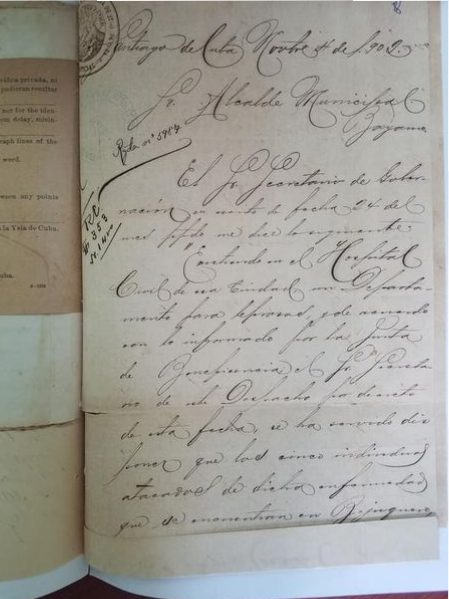 ífica privada, ni
pudieran resultar
nor for the iden-
om delay, misin-
graph lines of the
word.
ween any points
la Ysla de Cuba.
uba.
Santiago de Cuba Novbre 4 de 1902.
Sr. Alcalde Municipal
Bayamo
El Sr. Secretario de Gober-
nación, en escrito de fecha 24 del
mes ppdo me dice lo siguiente:
Existiendo en el Hospital
Civil de esa Ciudad un Departa-
mento para leprosos, y de acuerdo
con lo informado por la Junta
de Beneficencia el Sr. Secreta-
rio de este Despacho por decreto
de esta fecha, se ha servido dis
poner que los cinco individuos
atacados de dicha enfermedad
que se encuentran en